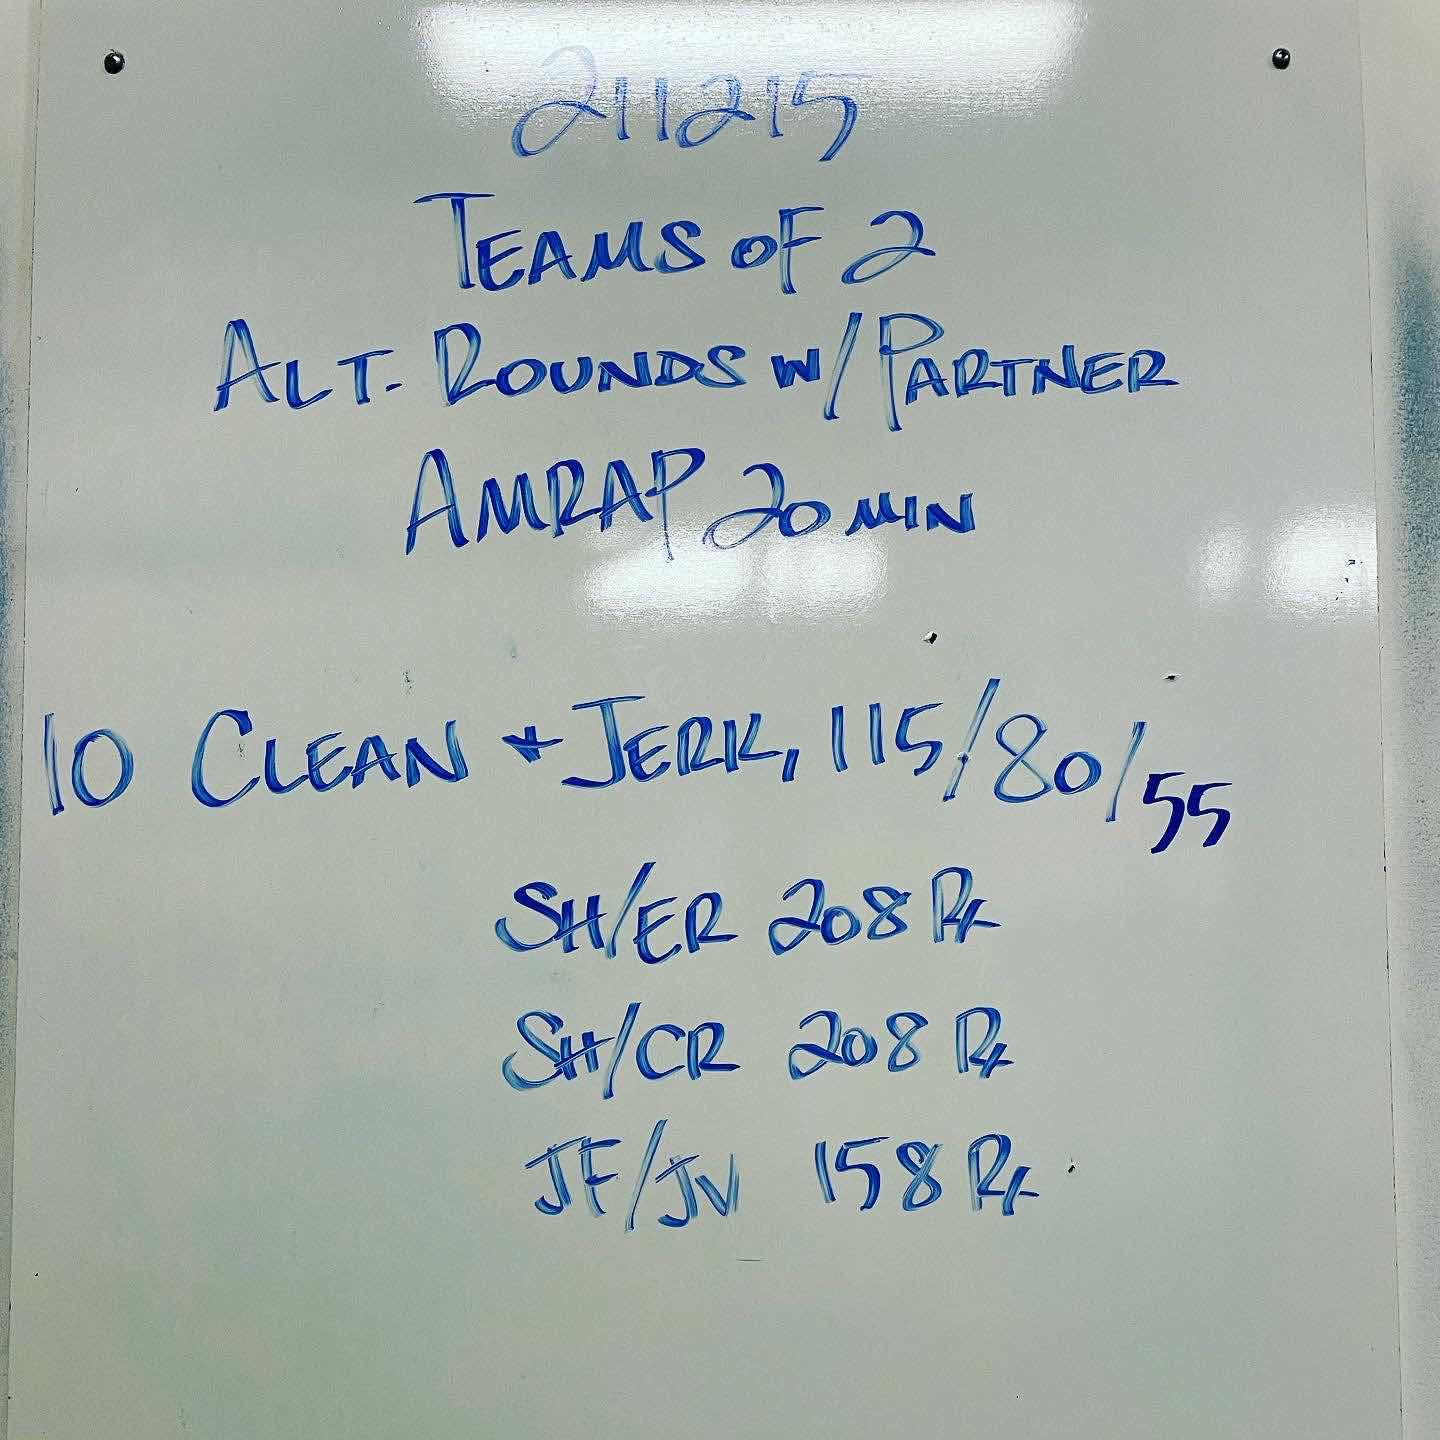 211215
TEAMS OF 2
ALT. ROUNDS W/ PARTNER
AMRAP 20 MIN
10 CLEAN + JERK, 115/80/55
SH/ER 208 Rx
SH/CR 208 Rx
JF/JV 158 Rx